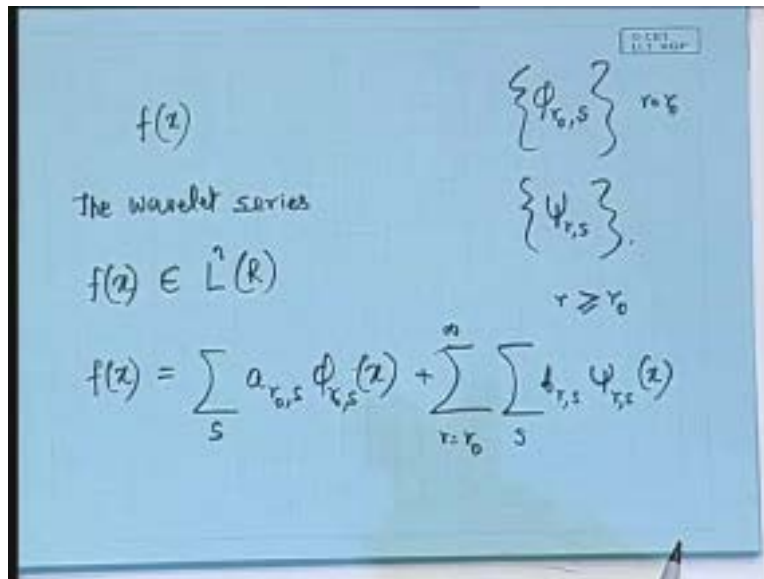 f(x)
{φ_{r₀,s}} r=r₀
The wavelet series
{ψ_{r,s}}.
f(x) ∈ L²(R)
r ≥ r₀
f(x) = ∑_s a_{r₀,s} φ_{r₀,s}(x) + ∑_{r=r₀}^∞ ∑_s b_{r,s} ψ_{r,s}(x)